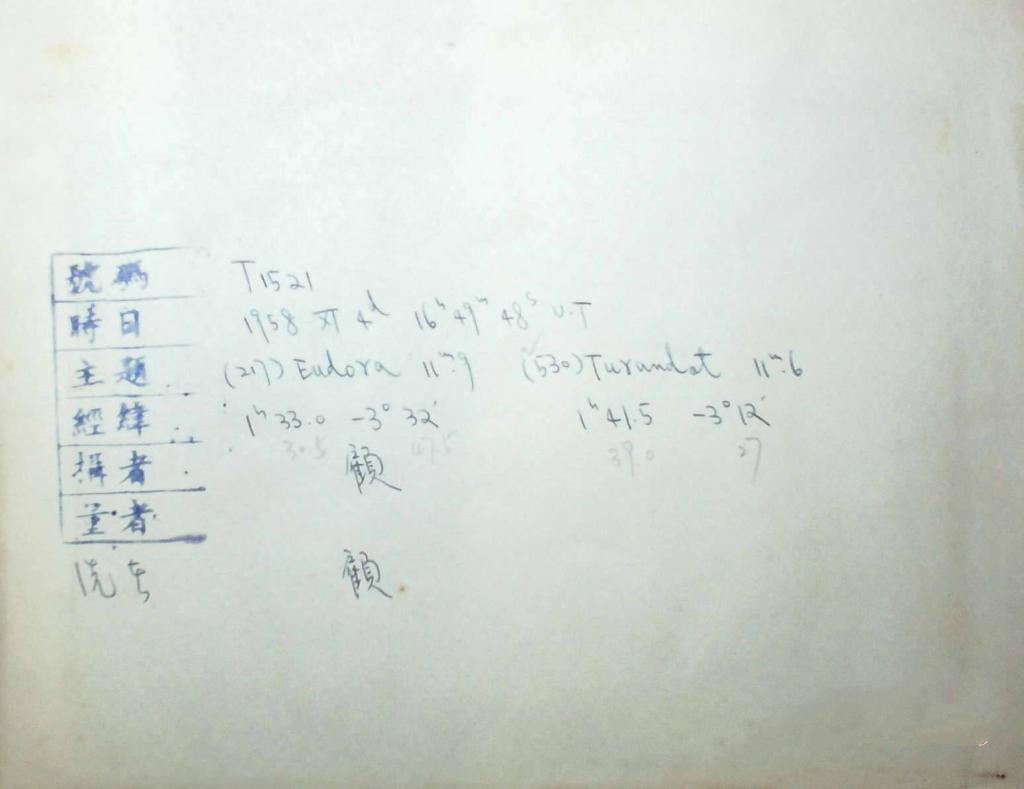 號碼 T1521
時日 1958 XI 4ᵈ 16ʰ 49ᵐ 48ˢ U.T
主題 (217) Eudora 11ᵐ.9 (530) Turandot 11ᵐ.6
經緯 1ʰ 33.0 -3° 32′ 1ʰ 41.5 -3° 12′
30.5 47.5 39.0 27
攝者 顧
量者
洗者 顧